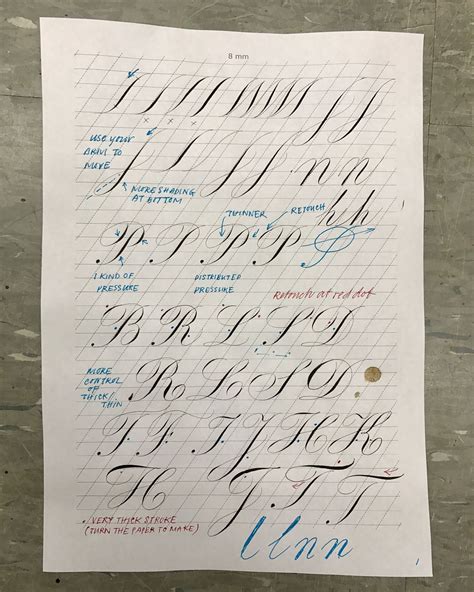 8 mm
USE YOUR
ARM TO
MOVE
n n
MORE SHADING
AT BOTTOM
h h
THINNER
RETOUCH
P P P P
1 KIND OF
PRESSURE
DISTRIBUTED
PRESSURE
Retouch at red dot
B R L S D
MORE
CONTROL
OF
THICK/
THIN
R L S D
T F I J H K
H J T T
VERY THICK STROKE
(TURN THE PAPER TO MAKE)
l l n n
1